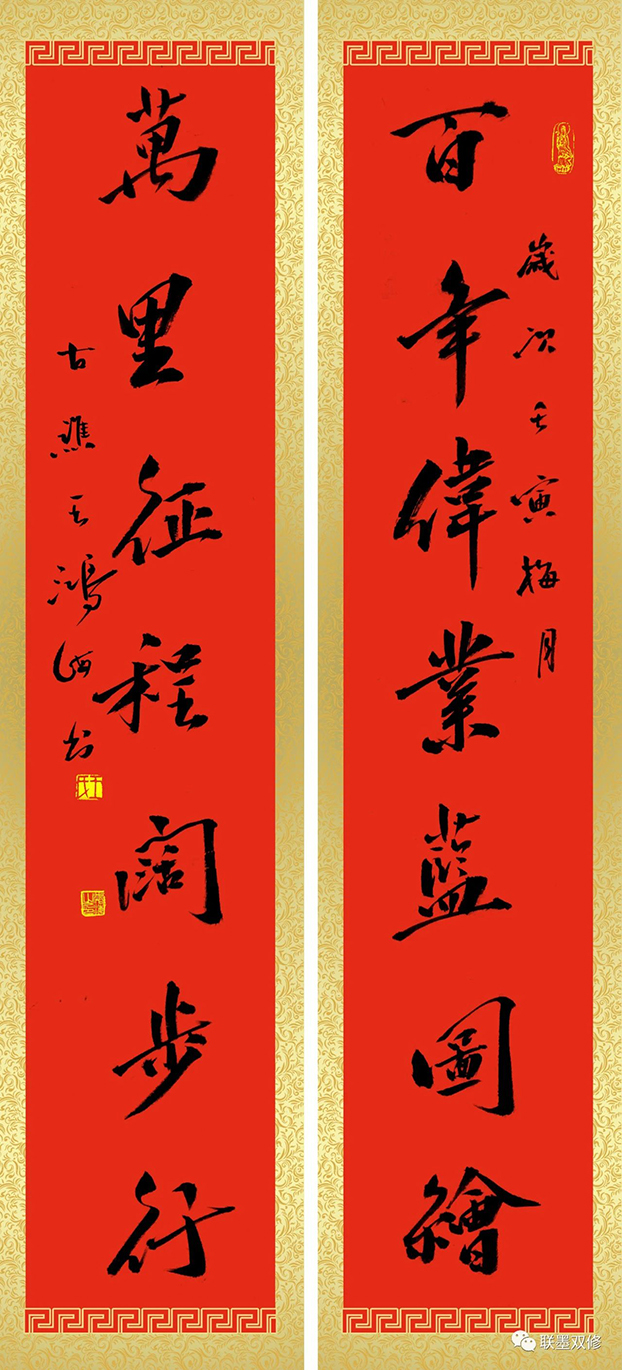 百年偉業藍圖繪
歲次壬寅梅月
萬里征程闊步行
古譙王鴻书
联墨双修